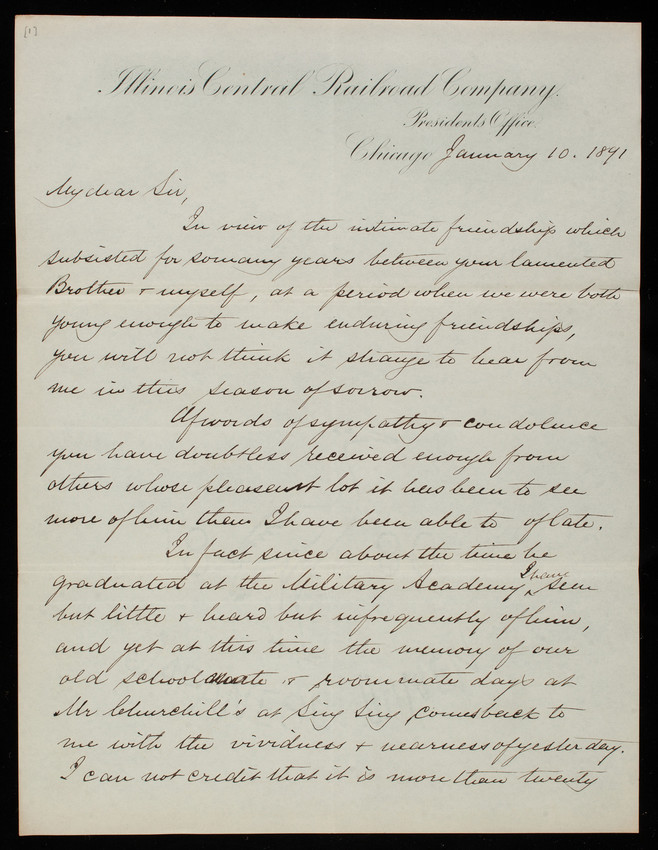 [1]
Illinois Central Railroad Company.
Presidents Office.
Chicago January 10. 1891
My dear Sir,
In view of the intimate friendship which
subsisted for so many years between your lamented
Brother & myself, at a period when we were both
young enough to make enduring friendships,
you will not think it strange to hear from
me in this season of sorrow.
Of words of sympathy & condolence
you have doubtless received enough from
others whose pleasant lot it has been to see
more of him than I have been able to of late.
In fact since about the time he
graduated at the Military Academy I have seen
but little & heard but infrequently of him,
and yet at this time the memory of our
old schoolmate & roommate days at
Mr Churchill's at Sing Sing, comes back to
me with the vividness & nearness of yesterday.
I can not credit that it is more than twenty